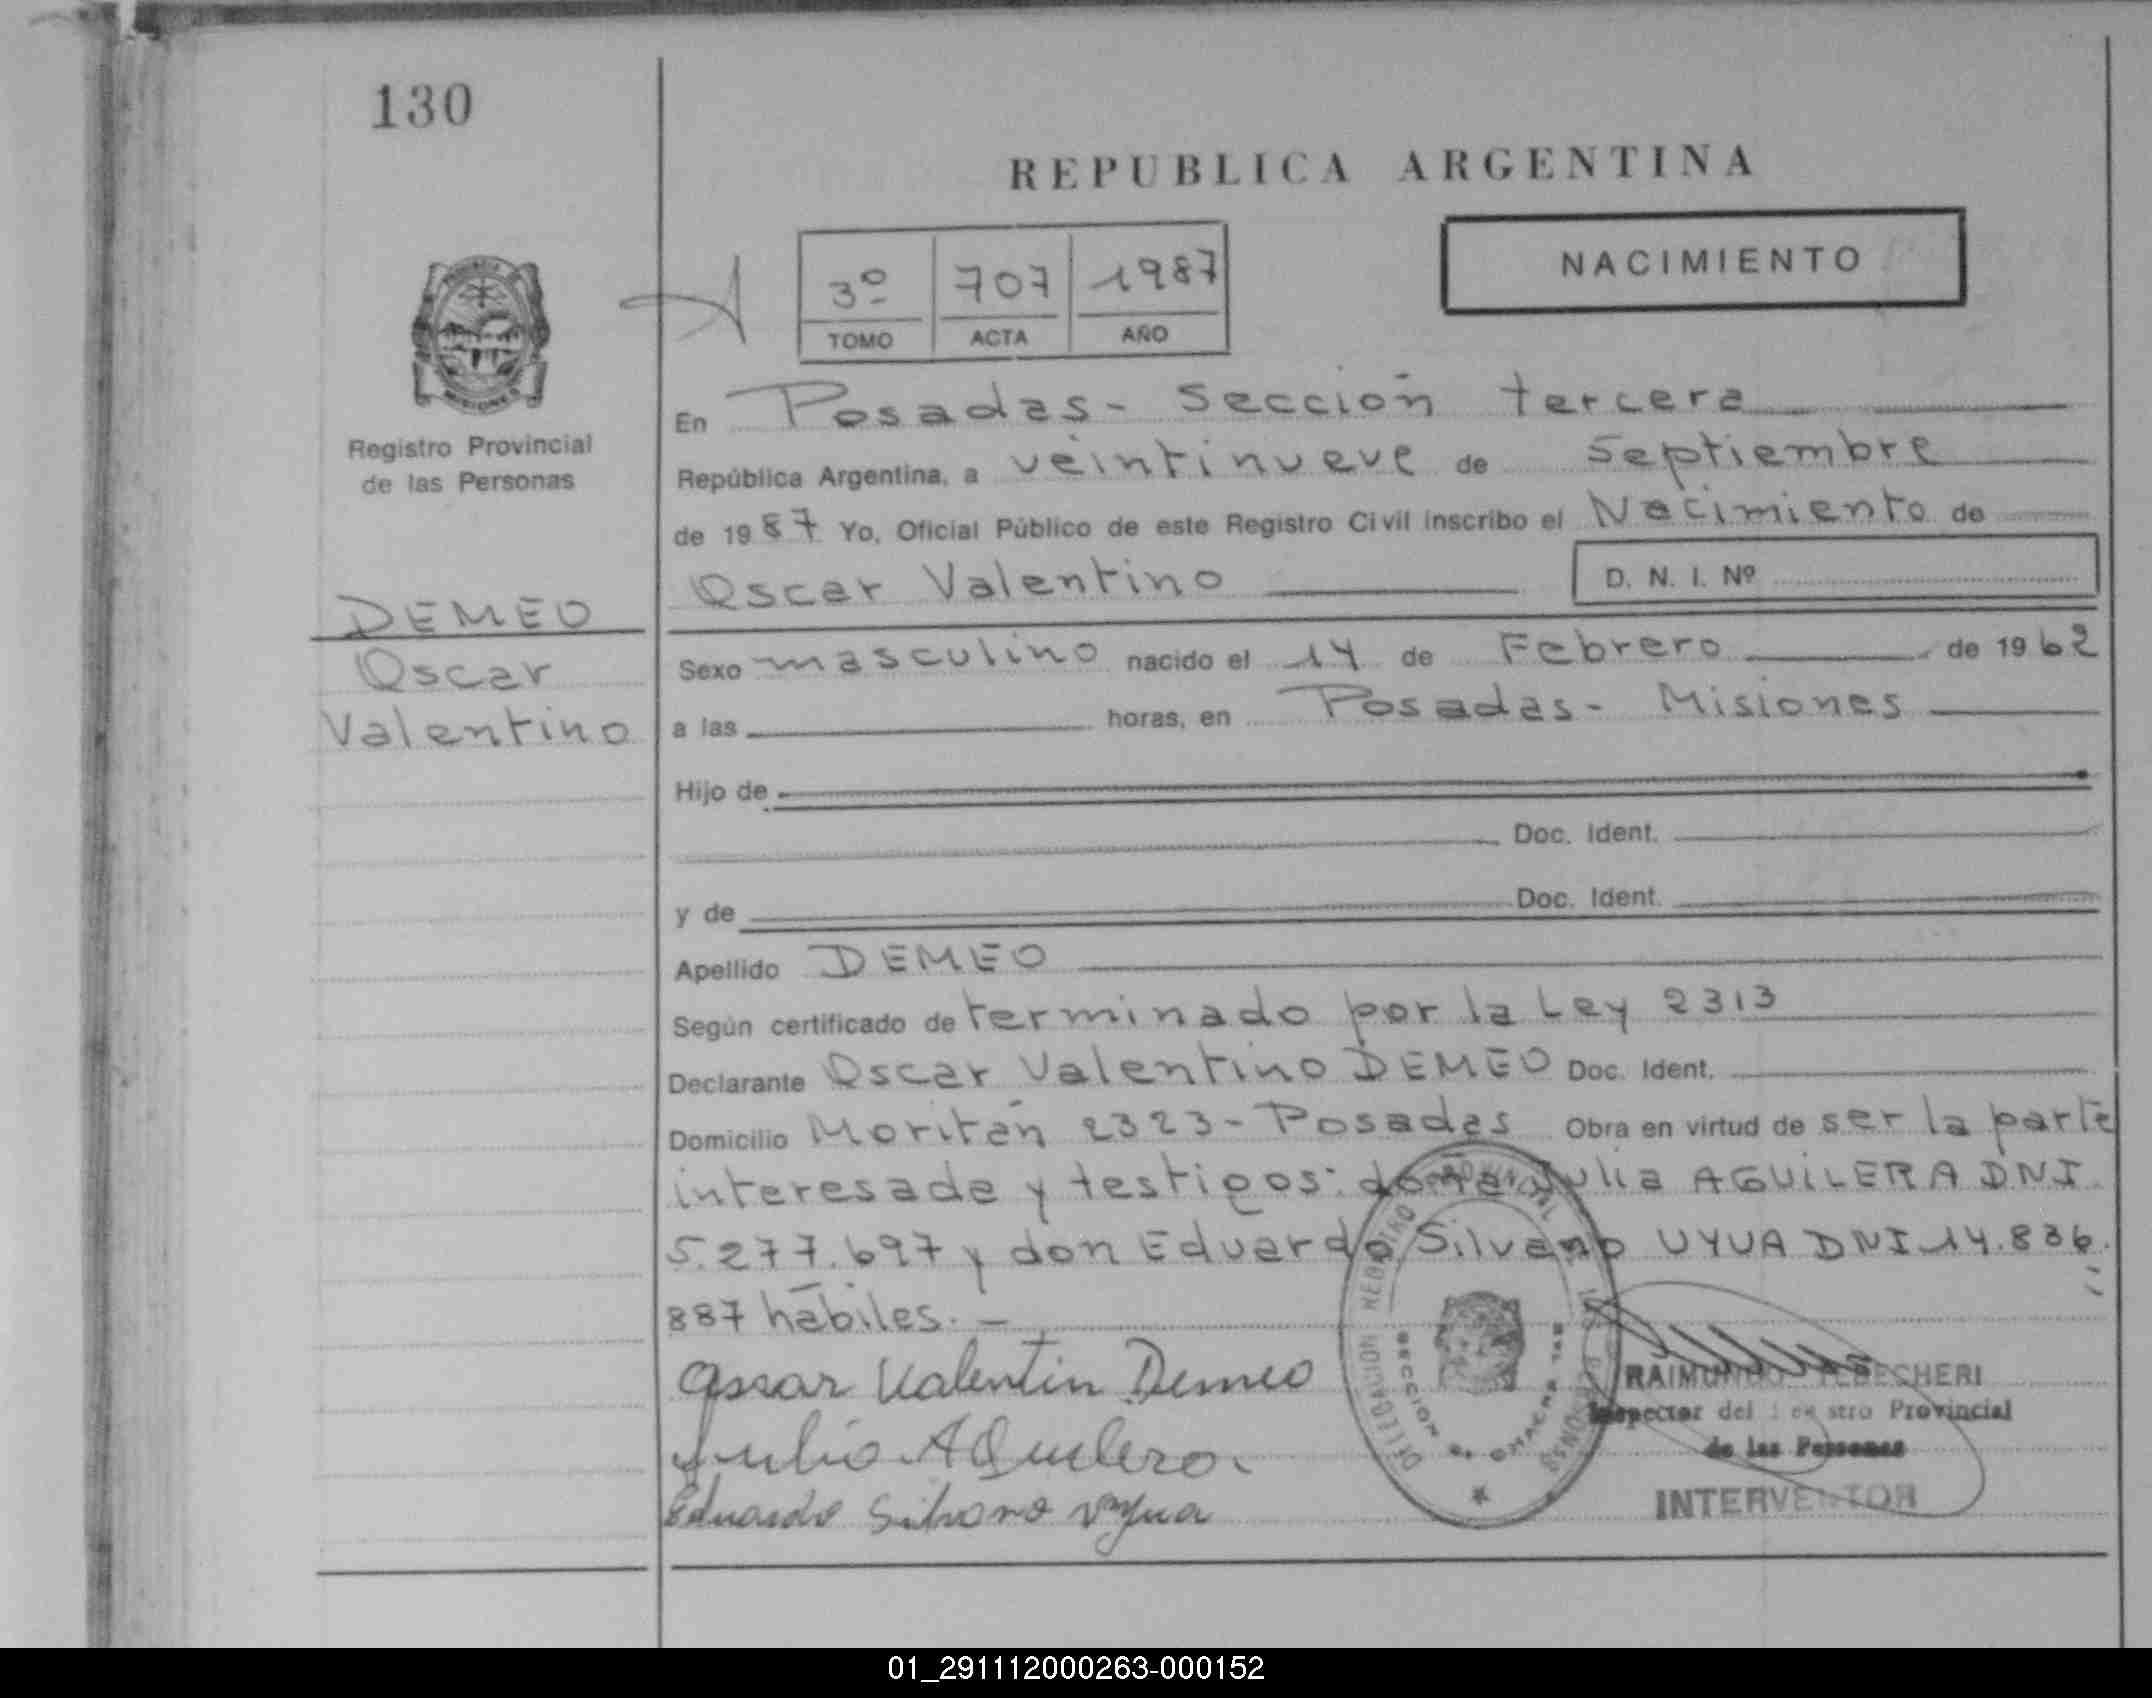 130
REPUBLICA ARGENTINA
3º 707 1987
TOMO ACTA AÑO
NACIMIENTO
Registro Provincial
de las Personas
DEMEO
Oscar
Valentino
En Posadas - sección tercera
República Argentina, a veintinueve de septiembre
de 1987 Yo, Oficial Público de este Registro Civil inscribo el Nacimiento de
Oscar Valentino D. N. I. Nº
Sexo masculino nacido el 14 de Febrero de 1962
a las horas, en Posadas - Misiones
Hijo de
Doc. Ident.
y de Doc. Ident.
Apellido DEMEO
Según certificado de terminado por la Ley 2313
Declarante Oscar Valentino DEMEO Doc. Ident.
Domicilio Moritán 2323 - Posadas Obra en virtud de ser la parte
interesada y testigos: doña Julia AGUILERA DNI
5.277.697 y don Eduardo Silvano UYUA DNI 14.836.
887 hábiles. -
Oscar Valentin Demeo
Julia Aguilera.
Eduardo Silvano Uyua
DELEGACION REGISTRO PROVINCIAL DE LAS PERSONAS
SECCION
RAIMUNDO
Inspector del Registro Provincial
de las Personas
INTERVENTOR
01_291112000263-000152